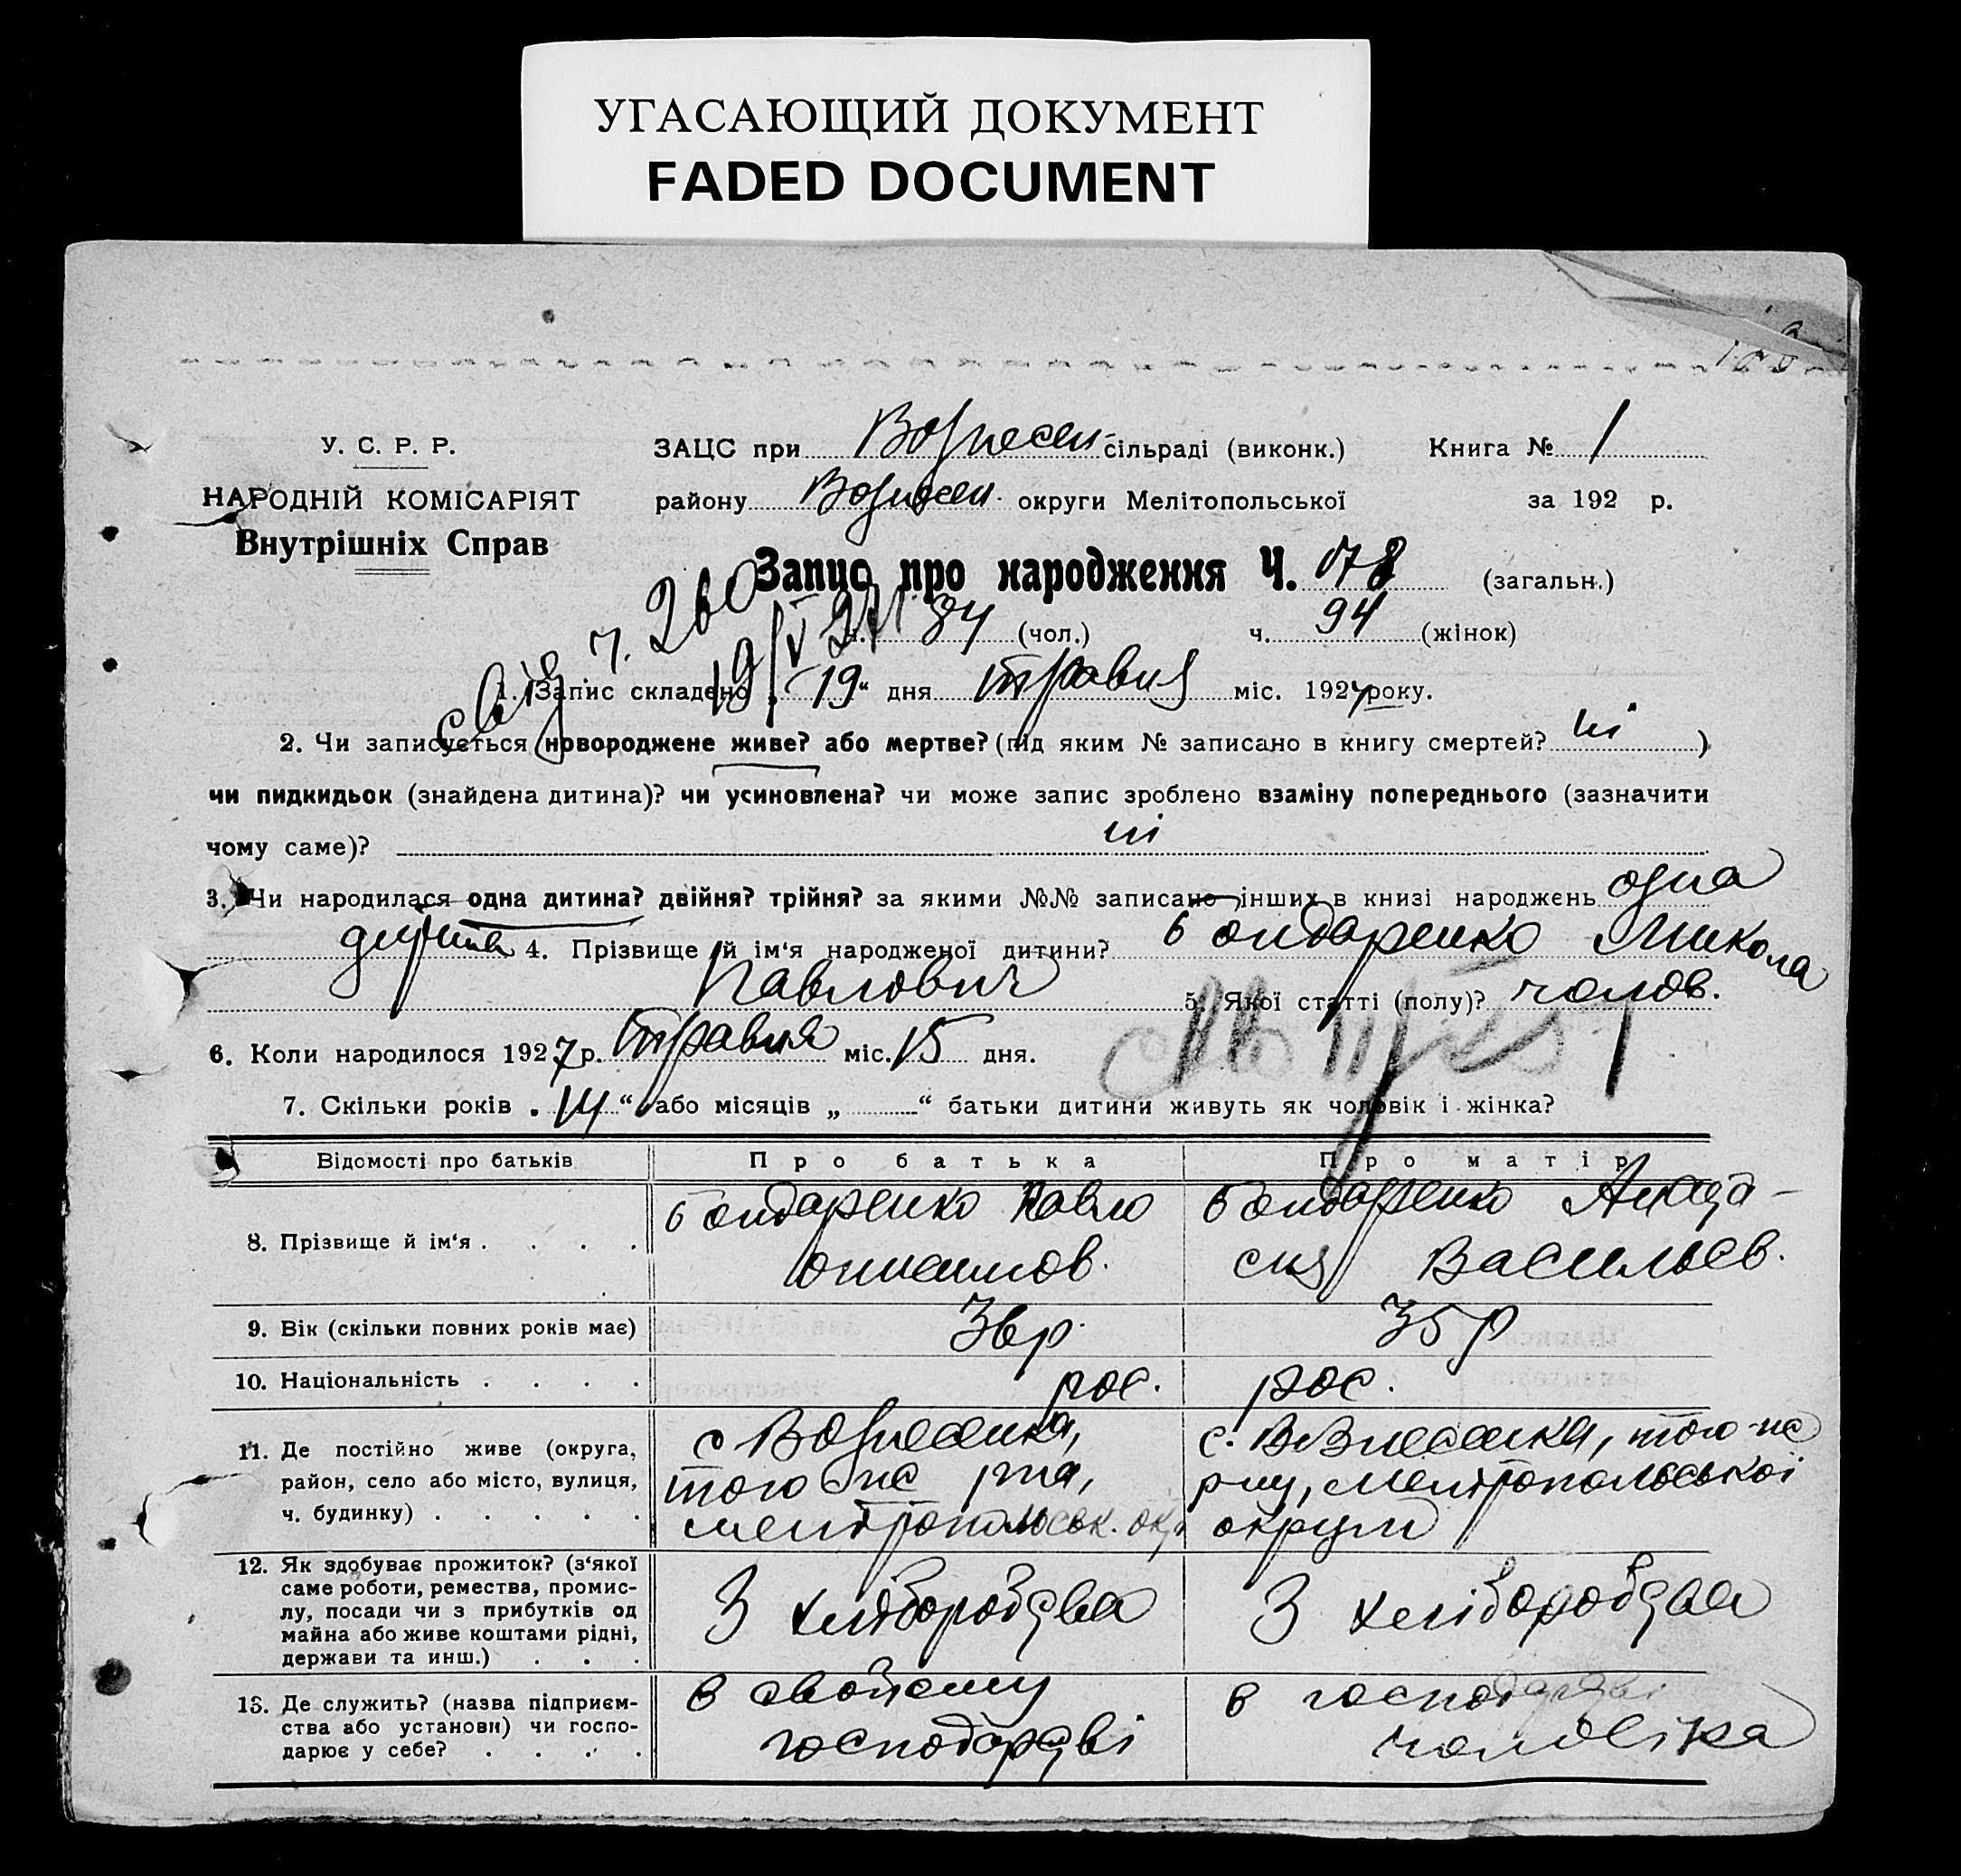 УГАСАЮЩИЙ ДОКУМЕНТ
FADED DOCUMENT
У. С. Р. Р.
НАРОДНІЙ КОМІСАРІЯТ
Внутрішніх Справ
ЗАЦС при Вознесен- сільраді (виконк.) Книга № 1
району Вознесен. округи Мелітопольської за 192 р.
Запис про народження Ч. 178 (загальн.)
ч. 84 (чол.) ч. 94 (жінок)
свід ч. 260
19/V 27
1. Запис складено „19“ дня травня міс. 1927 року.
2. Чи записується новороджене живе? або мертве? (під яким № записано в книгу смертей? ні )
чи пидкидьок (знайдена дитина)? чи усиновлена? чи може запис зроблено взаміну попереднього (зазначити
чому саме)? ні
3. Чи народилася одна дитина? двійня? трійня? за якими №№ записано інших в книзі народжень одна
дитина 4. Прізвище й ім‘я народженої дитини? Бондаренко Микола
Павлович 5. Якої статті (полу)? чолов.
6. Коли народилося 1927 р. травня міс. 15 дня.
7. Скільки років „14“ або місяців „ “ батьки дитини живуть як чоловік і жінка?
Відомості про батьків Про батька Про матір
8. Прізвище й ім‘я . . . . Бондаренко Павло Бондаренко Анаста-
сия Васильев.
9. Вік (скільки повних років має) 36 р. 35 р
10. Національність . . . . рос. рос.
11. Де постійно живе (округа, район, село або місто, вулиця, ч. будинку) . . . . .
с Вознесенка, того же р-на, мелітопольськ. окр
с. Вознесенка, того-же р-ну, мелітопольської округи
12. Як здобуває прожиток? (з‘якої саме роботи, ремества, промислу, посади чи з прибутків од майна або живе коштами рідні, держави та инш.) . . .
З хліборобства З хліборобства
13. Де служить? (назва підприємства або установи) чи господарює у себе? . . . .
в своїому господарстві
в господарстві чоловіка